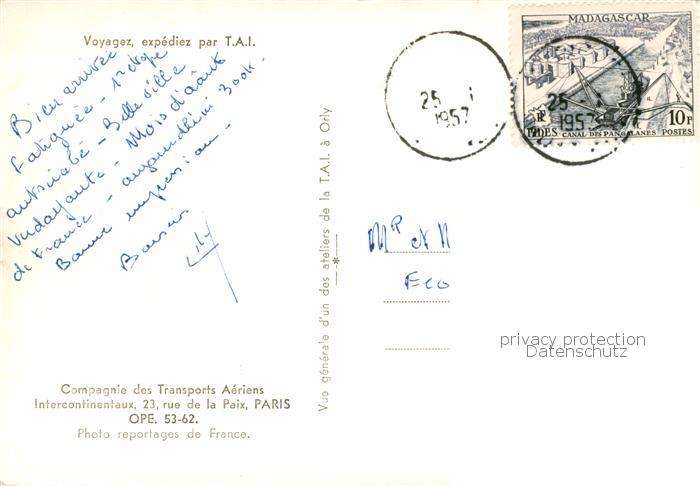 Voyagez, expédiez par T.A.I.
Bien arrivée
fatiguée - 1e étape
antsirabé - Belle ville
Verdoyante - Mois d'août
de France - aujourd'hui 300k.
Bonne impression -
Baisers
Compagnie des Transports Aériens
Intercontinentaux, 23, rue de la Paix, PARIS
OPE. 53-62.
Photo reportages de France.
Vue générale d'un des ateliers de la T.A.I. à Orly
MADAGASCAR
25 1
1957
25
1957
10F
FIDES CANAL DES PANGALANES POSTES
Mr et M
privacy protection
Datenschutz